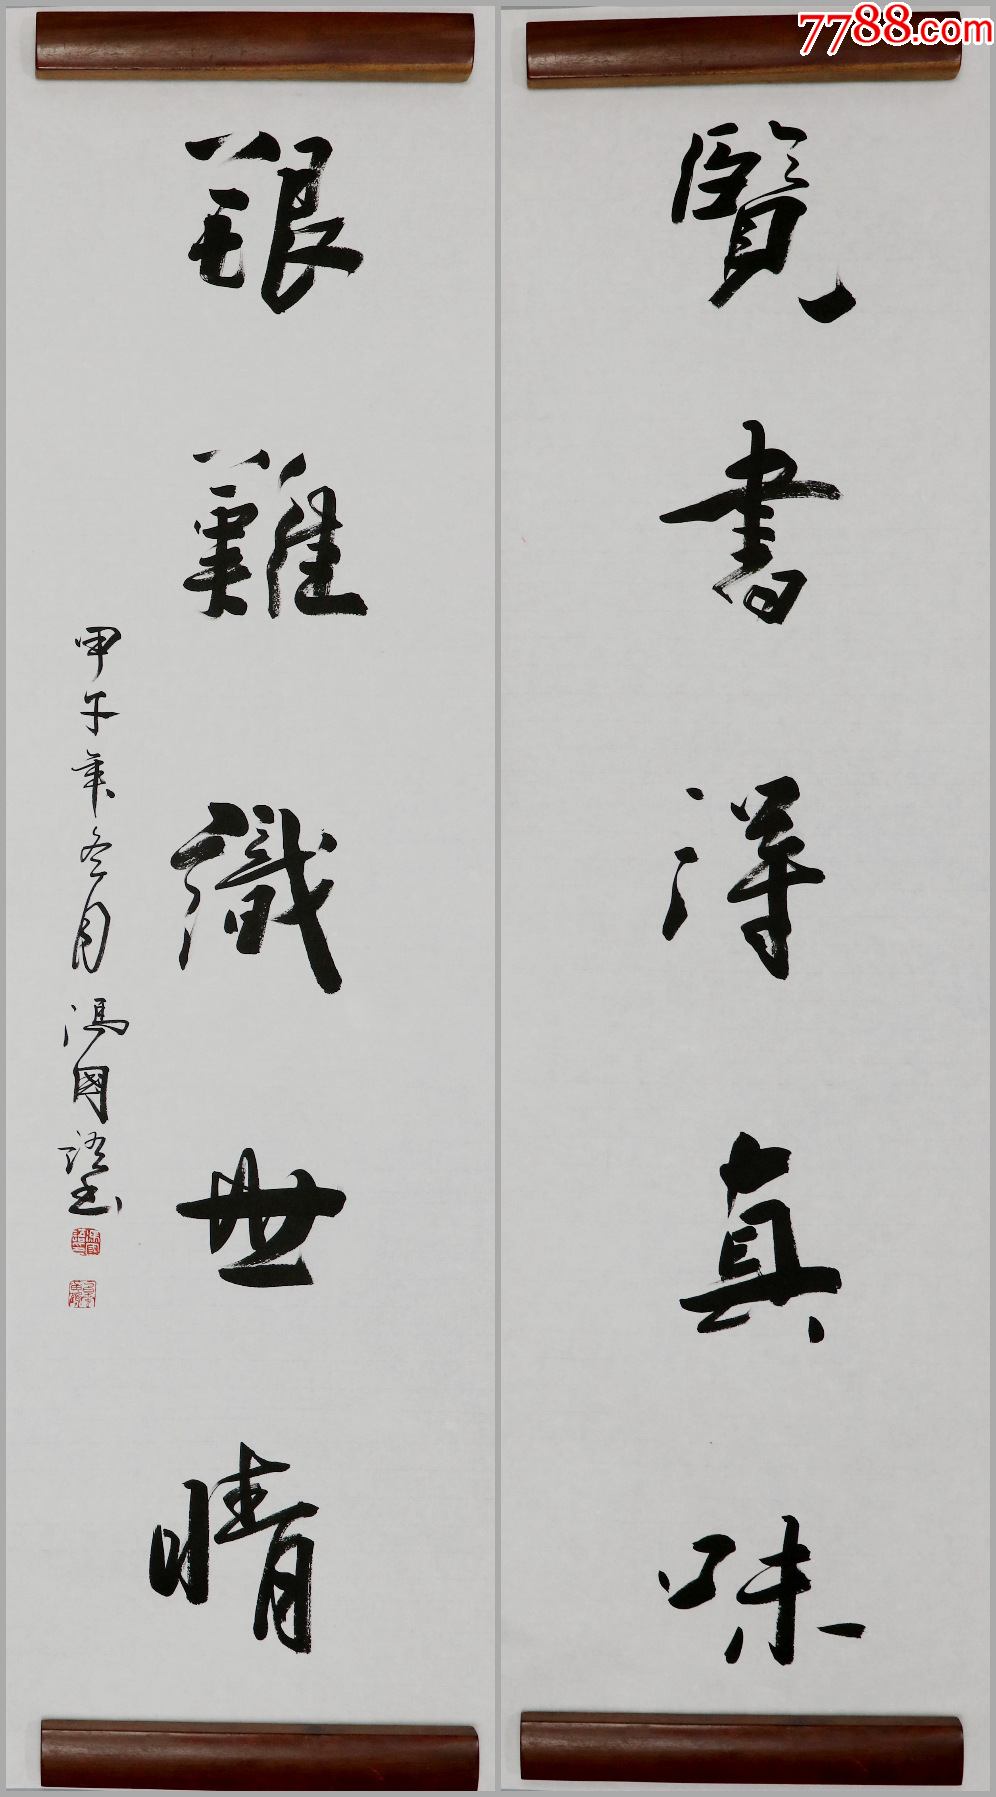 7788.com
覽書得真味
艱難識世情
甲午年冬月馮國語書